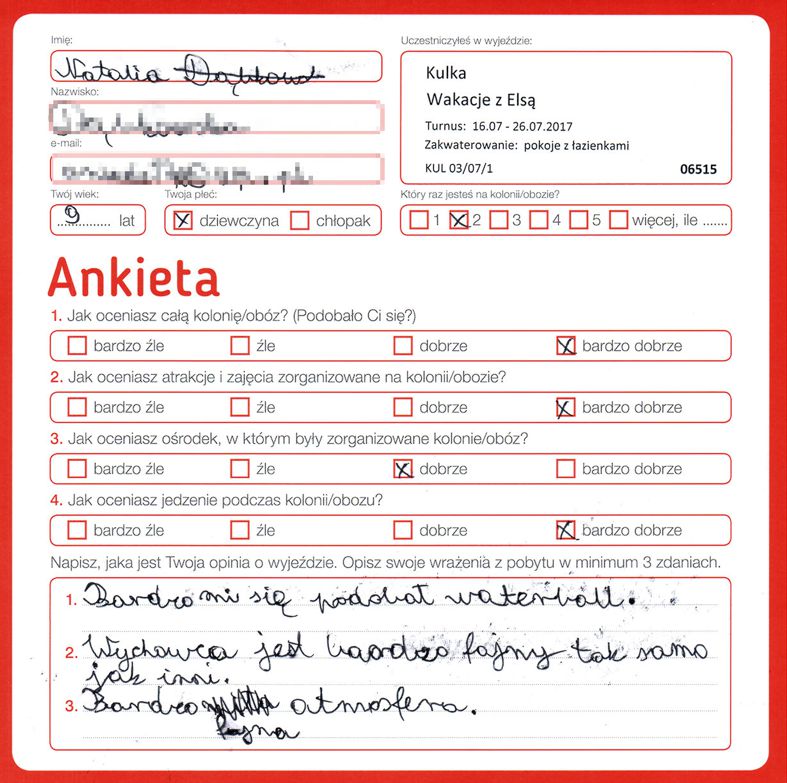 Imię:
Natalia
Uczestniczyłeś w wyjeździe:
Kulka
Wakacje z Elsą
Turnus: 16.07 - 26.07.2017
Zakwaterowanie: pokoje z łazienkami
KUL 03/07/1 06515
Nazwisko:
e-mail:
Twój wiek:
9 lat
Twoja płeć:
dziewczyna chłopak
Który raz jesteś na kolonii/obozie?
1 2 3 4 5 więcej, ile .......
Ankieta
1. Jak oceniasz całą kolonię/obóz? (Podobało Ci się?)
bardzo źle źle dobrze bardzo dobrze
2. Jak oceniasz atrakcje i zajęcia zorganizowane na kolonii/obozie?
bardzo źle źle dobrze bardzo dobrze
3. Jak oceniasz ośrodek, w którym były zorganizowane kolonie/obóz?
bardzo źle źle dobrze bardzo dobrze
4. Jak oceniasz jedzenie podczas kolonii/obozu?
bardzo źle źle dobrze bardzo dobrze
Napisz, jaka jest Twoja opinia o wyjeździe. Opisz swoje wrażenia z pobytu w minimum 3 zdaniach.
1. Bardzo mi się podobał waterball.
2. Wychowca jest baardzo fajny tak samo
jak inni.
3. Bardzo atmosfera.
fajna